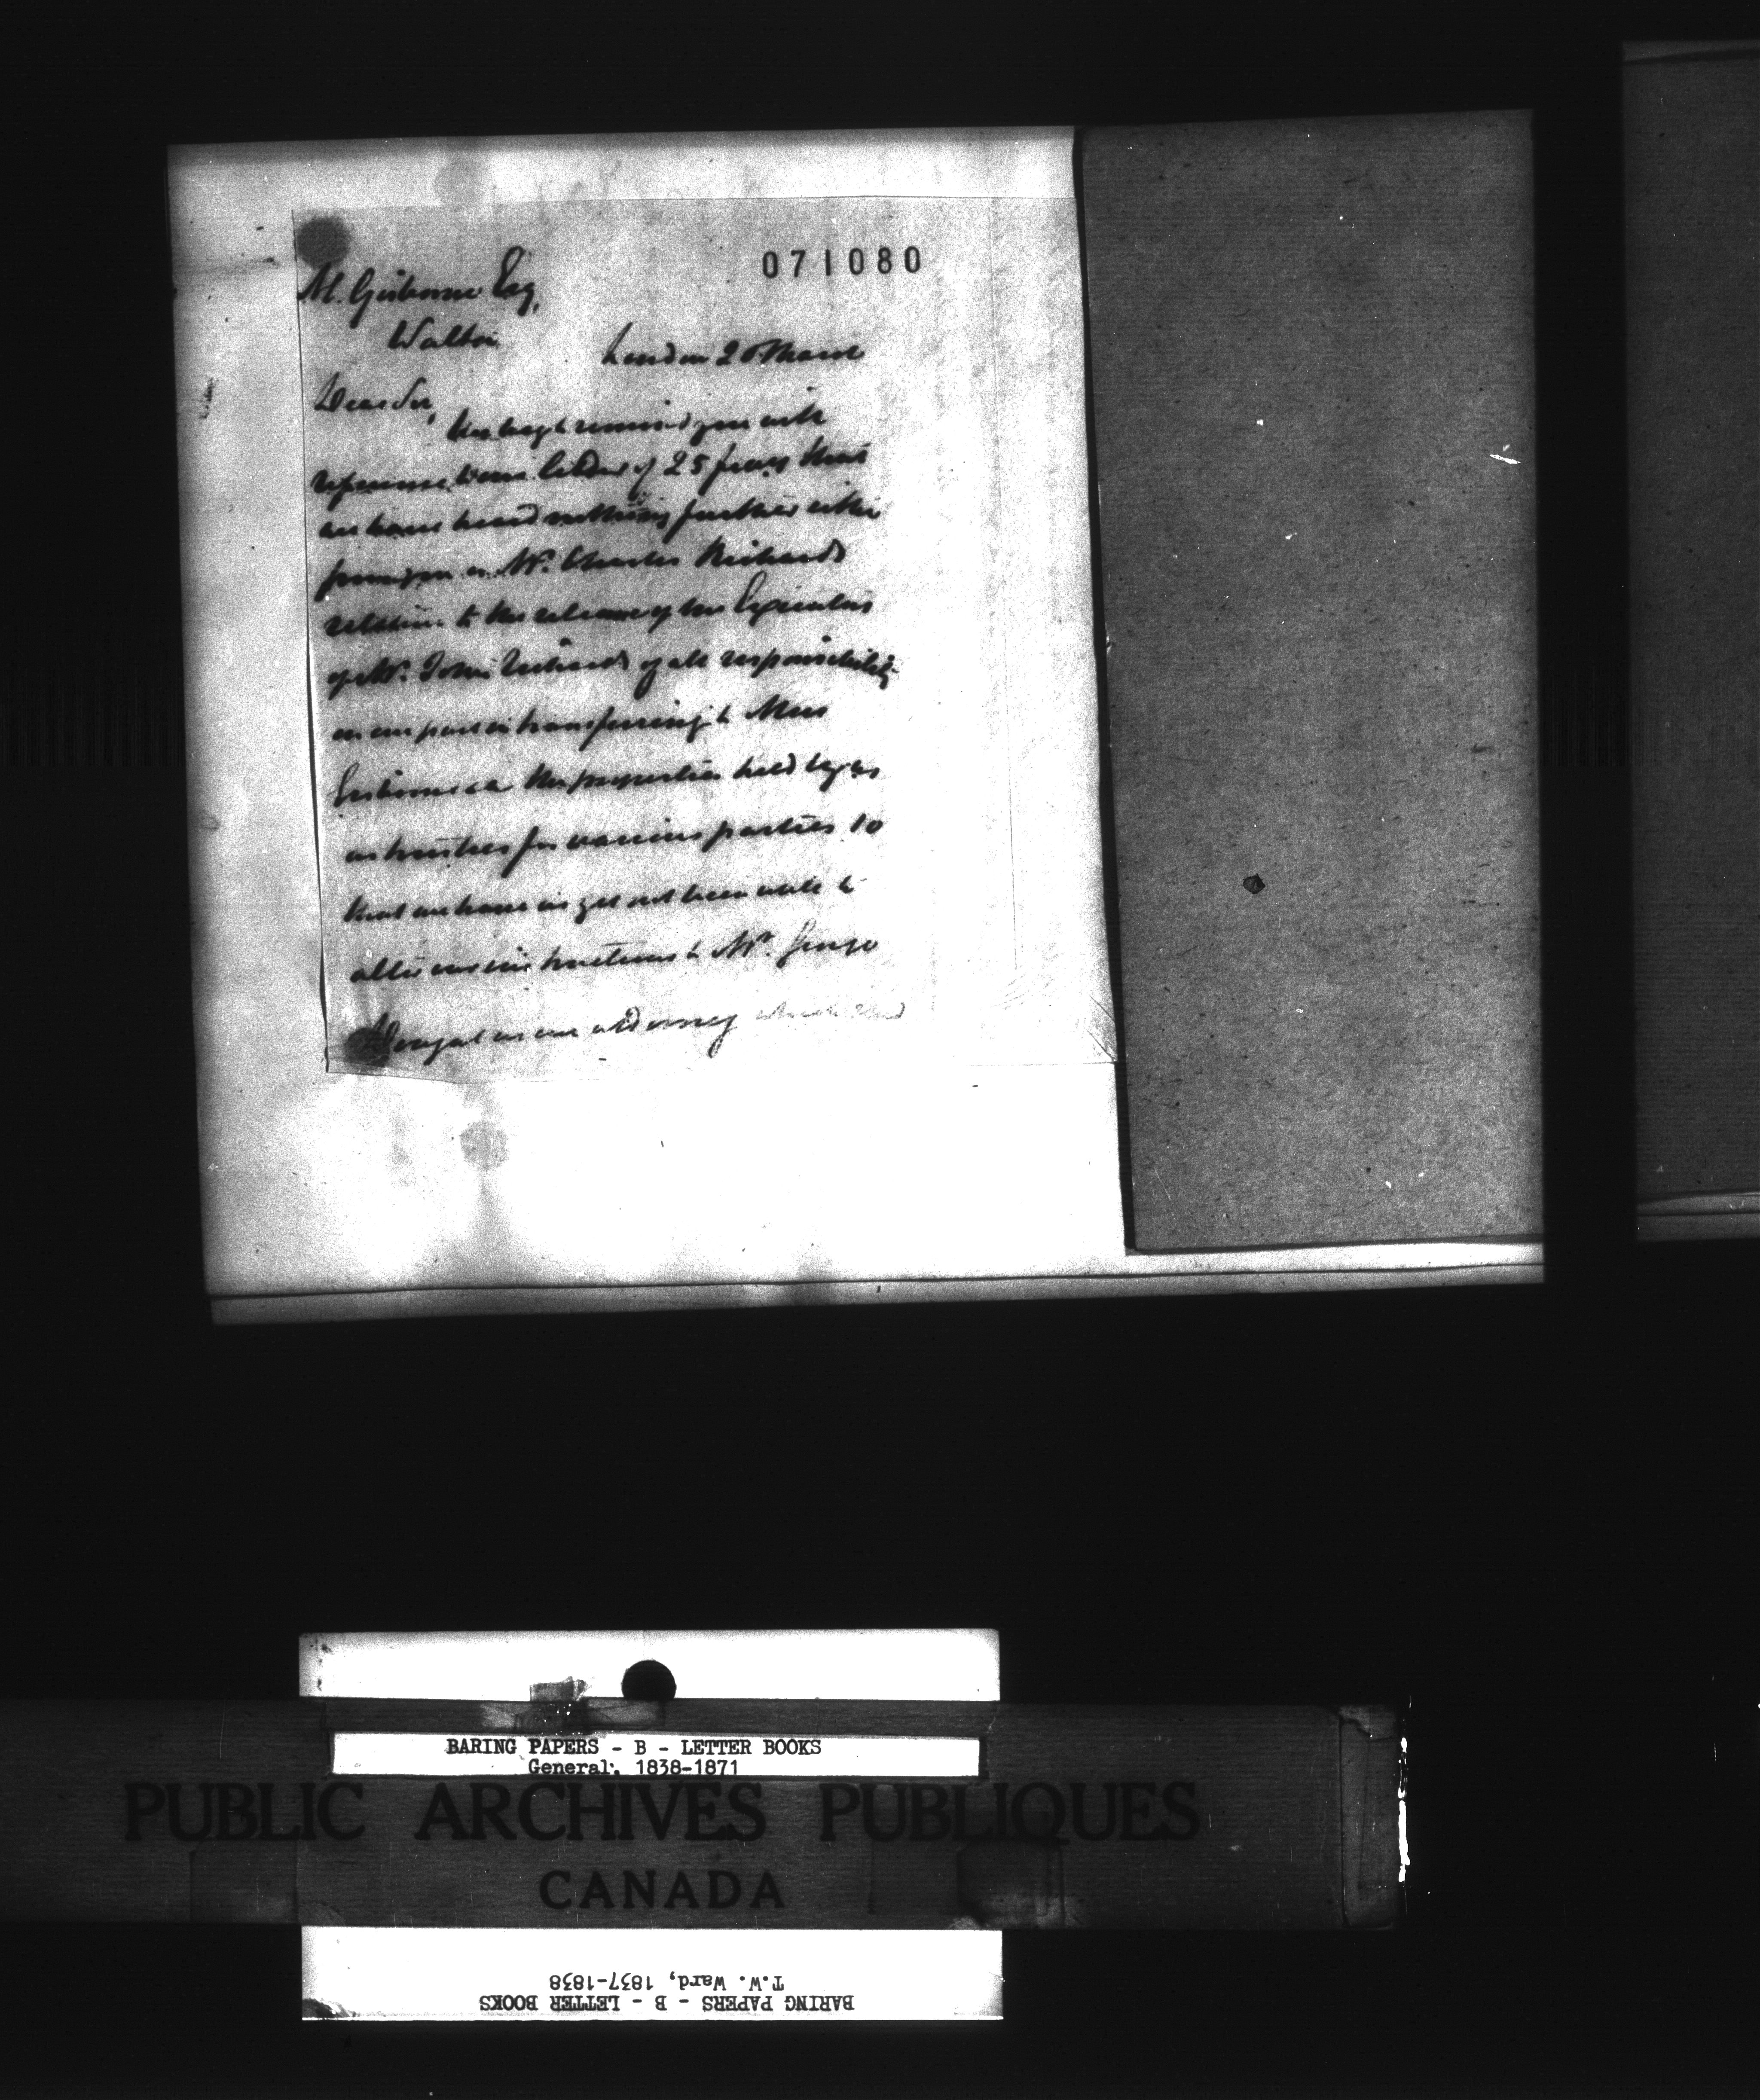 071080
M. Gisborne Esq,
Walton
London 26 March
Dear Sir,
We beg to remind you with
reference to our letter of 25 that
we have heard nothing further either
from you or Mr. Charles Richards
relative to the release of the Executors
of Mr. John Richards of all responsibility
on our part in transferring to Mrs
Gisborne the properties held by us
as trustees for various parties so
that we have as yet not been able to
alter our instructions to Mr. George
as our attorney
BARING PAPERS - B - LETTER BOOKS
General, 1838-1871
PUBLIC ARCHIVES PUBLIQUES
CANADA
T.W. Ward, 1837-1838
BARING PAPERS - B - LETTER BOOKS